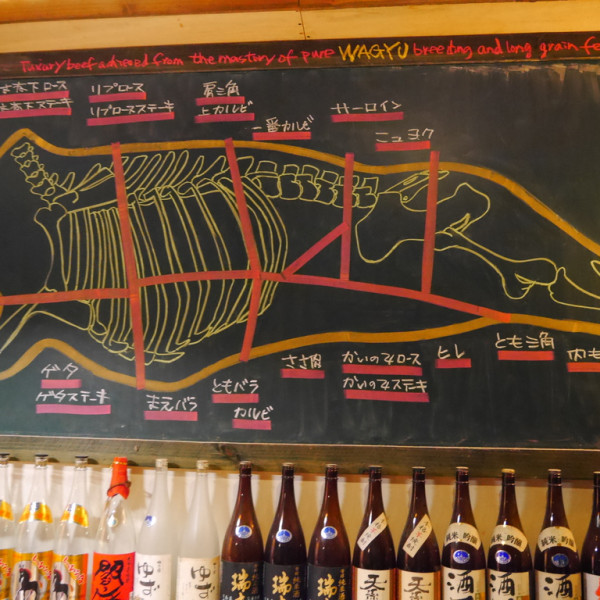 Luxury beef achieved from the mastery of pure WAGYU breeding and long grain fe
下ロース
下ステーキ
リブロース
リブロースステーキ
肩三角
上カルビ
一番カルビ
サーロイン
ニュヨク
ゲタ
ゲタステーキ
まえバラ
ともバラ
カルビ
ささ肉
かいのみロース
かいのみステーキ
ヒレ
とも三角
内も
ゆず
ゆず
瑞
瑞
瑞
純米吟醸
酒
純米吟醸
酒
純米吟醸
酒